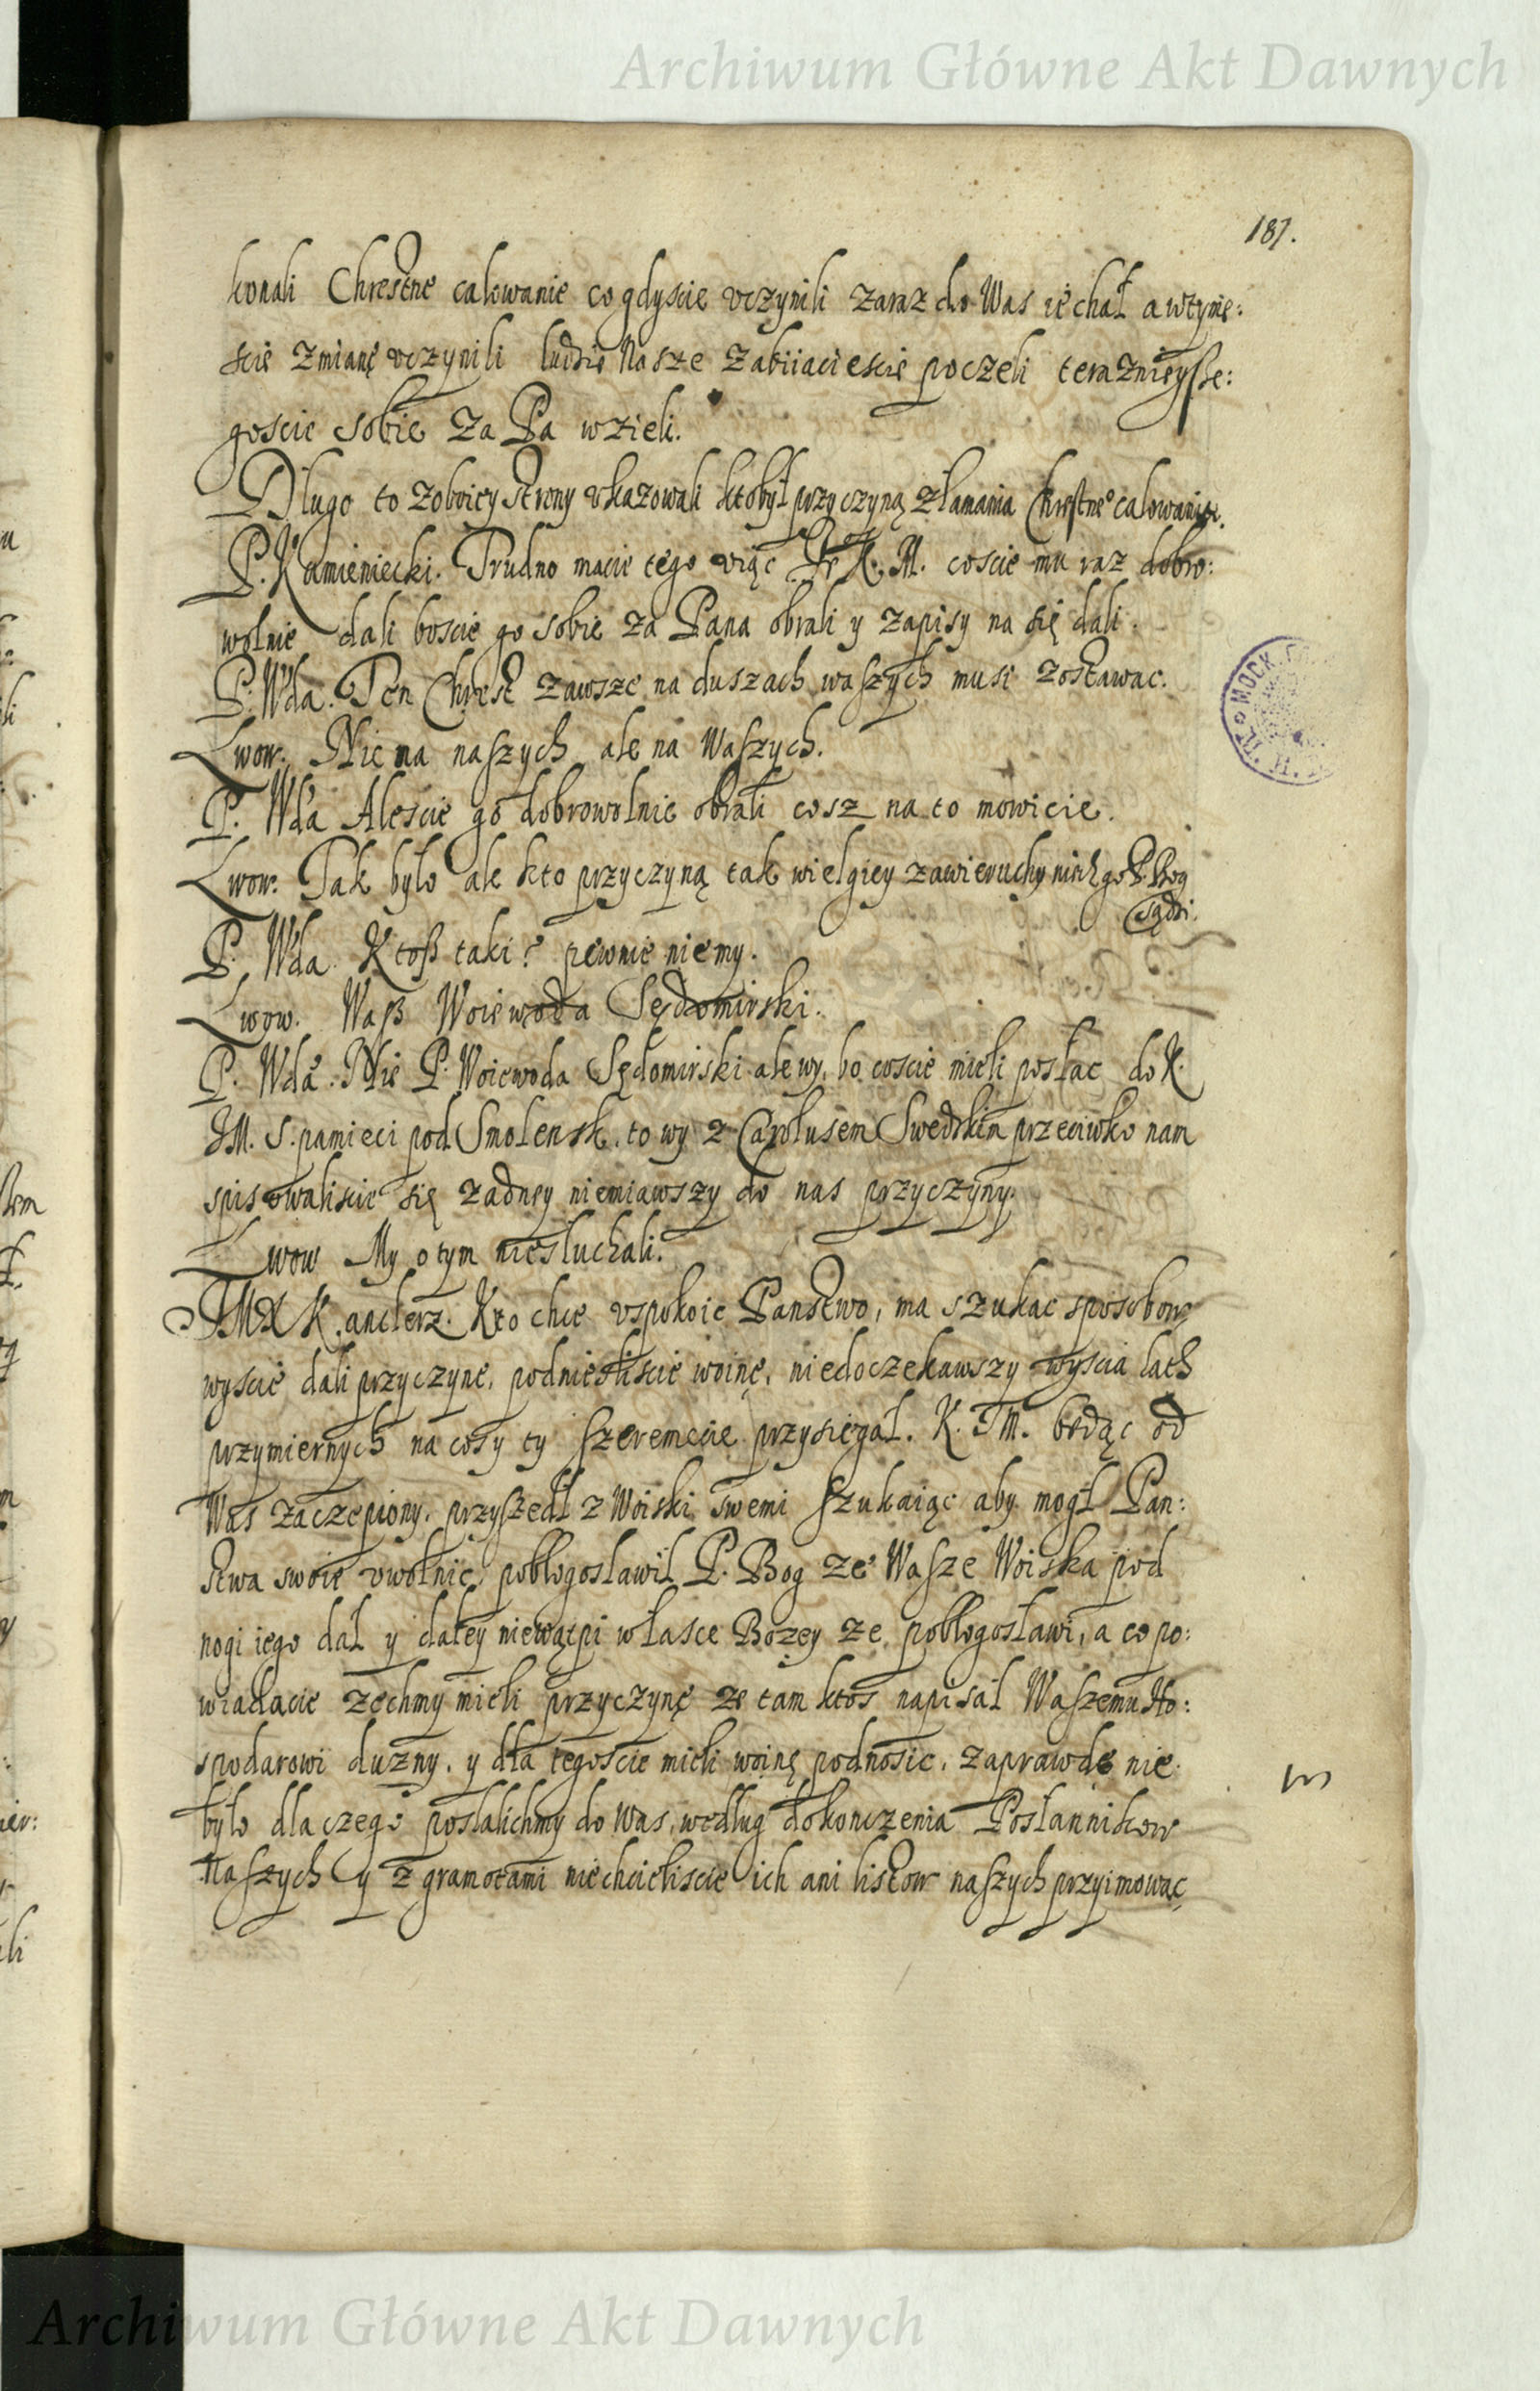 Archiwum Główne Akt Dawnych
187.
konali Chrestne calowanie co gdyscie vczynili zaraz do Was iechał a wtyme:
scie zmianę vczynili ludzie Nasze zabiiaciescie poczeli teraznieysze:
goscie sobie za Pa wzieli.
Długo to zoboiey strony vkazowali kto był przyczyną złamania Chrestne° calowania.
P. Kamieniecki. Trudno macie tego viąc K. M. coscie mu raz dobro:
wolnie dali boscie go sobie za Pana obrali y zapisy na się dali.
P. Wda. Ten Chrest zawsze na duszach waszych musi zostawac.
Lwow. Nie na naszych ale na Waszych.
P. Wda Alescie go dobrowolnie obrali cosz na to mowicie.
Lwow. Tak było ale kto przyczyną tak wielgiey zawieruchy niech go P. Bog
sądzi.
P. Wda. Ktosz taki? pewnie nie my.
Lwow. Wasz Woiewoda Sędomirski.
P. Wda. Nie P. Woiewoda Sędomirski ale wy, bo coscie mieli posłac do K.
JM. S. pamieci pod Smolensk. to wy z Carolusem Swedzkim przeciwko nam
spisowaliscie się zadney niemiawszy do nas przyczyny.
Lwow My o tym niesłuchali.
JMX Kanclerz. Kto chce vspokoic Panstwo, ma szukac sposobow
wyscie dali przyczynę, podniesliscie woinę, niedoczekawszy wyscia lath
przymiernych na cosy ty Szeremecie przysiegał. K. JM. będąc od
Was zaczepiony. przyszedł z Woiski swemi szukaiąc aby mogł Pan:
stwa swoie vwolnic, pobłogosławił P. Bog ze Wasze Woiska pod
nogi iego dał y daley niewątpi w łasce Bozey ze pobłogosławi, a co po:
wiadacie zechmy mieli przyczynę ze tam ktos napisał Waszemu Ho:
spodarowi duzny. y dla tegoscie mieli woinę podnosic. zaprawdę nie
było dla czego posłalichmy do Was, według dokonczenia Posłannikow
Naszych y z gramotami niechcieliscie ich ani listow naszych przyimowac
Archiwum Główne Akt Dawnych